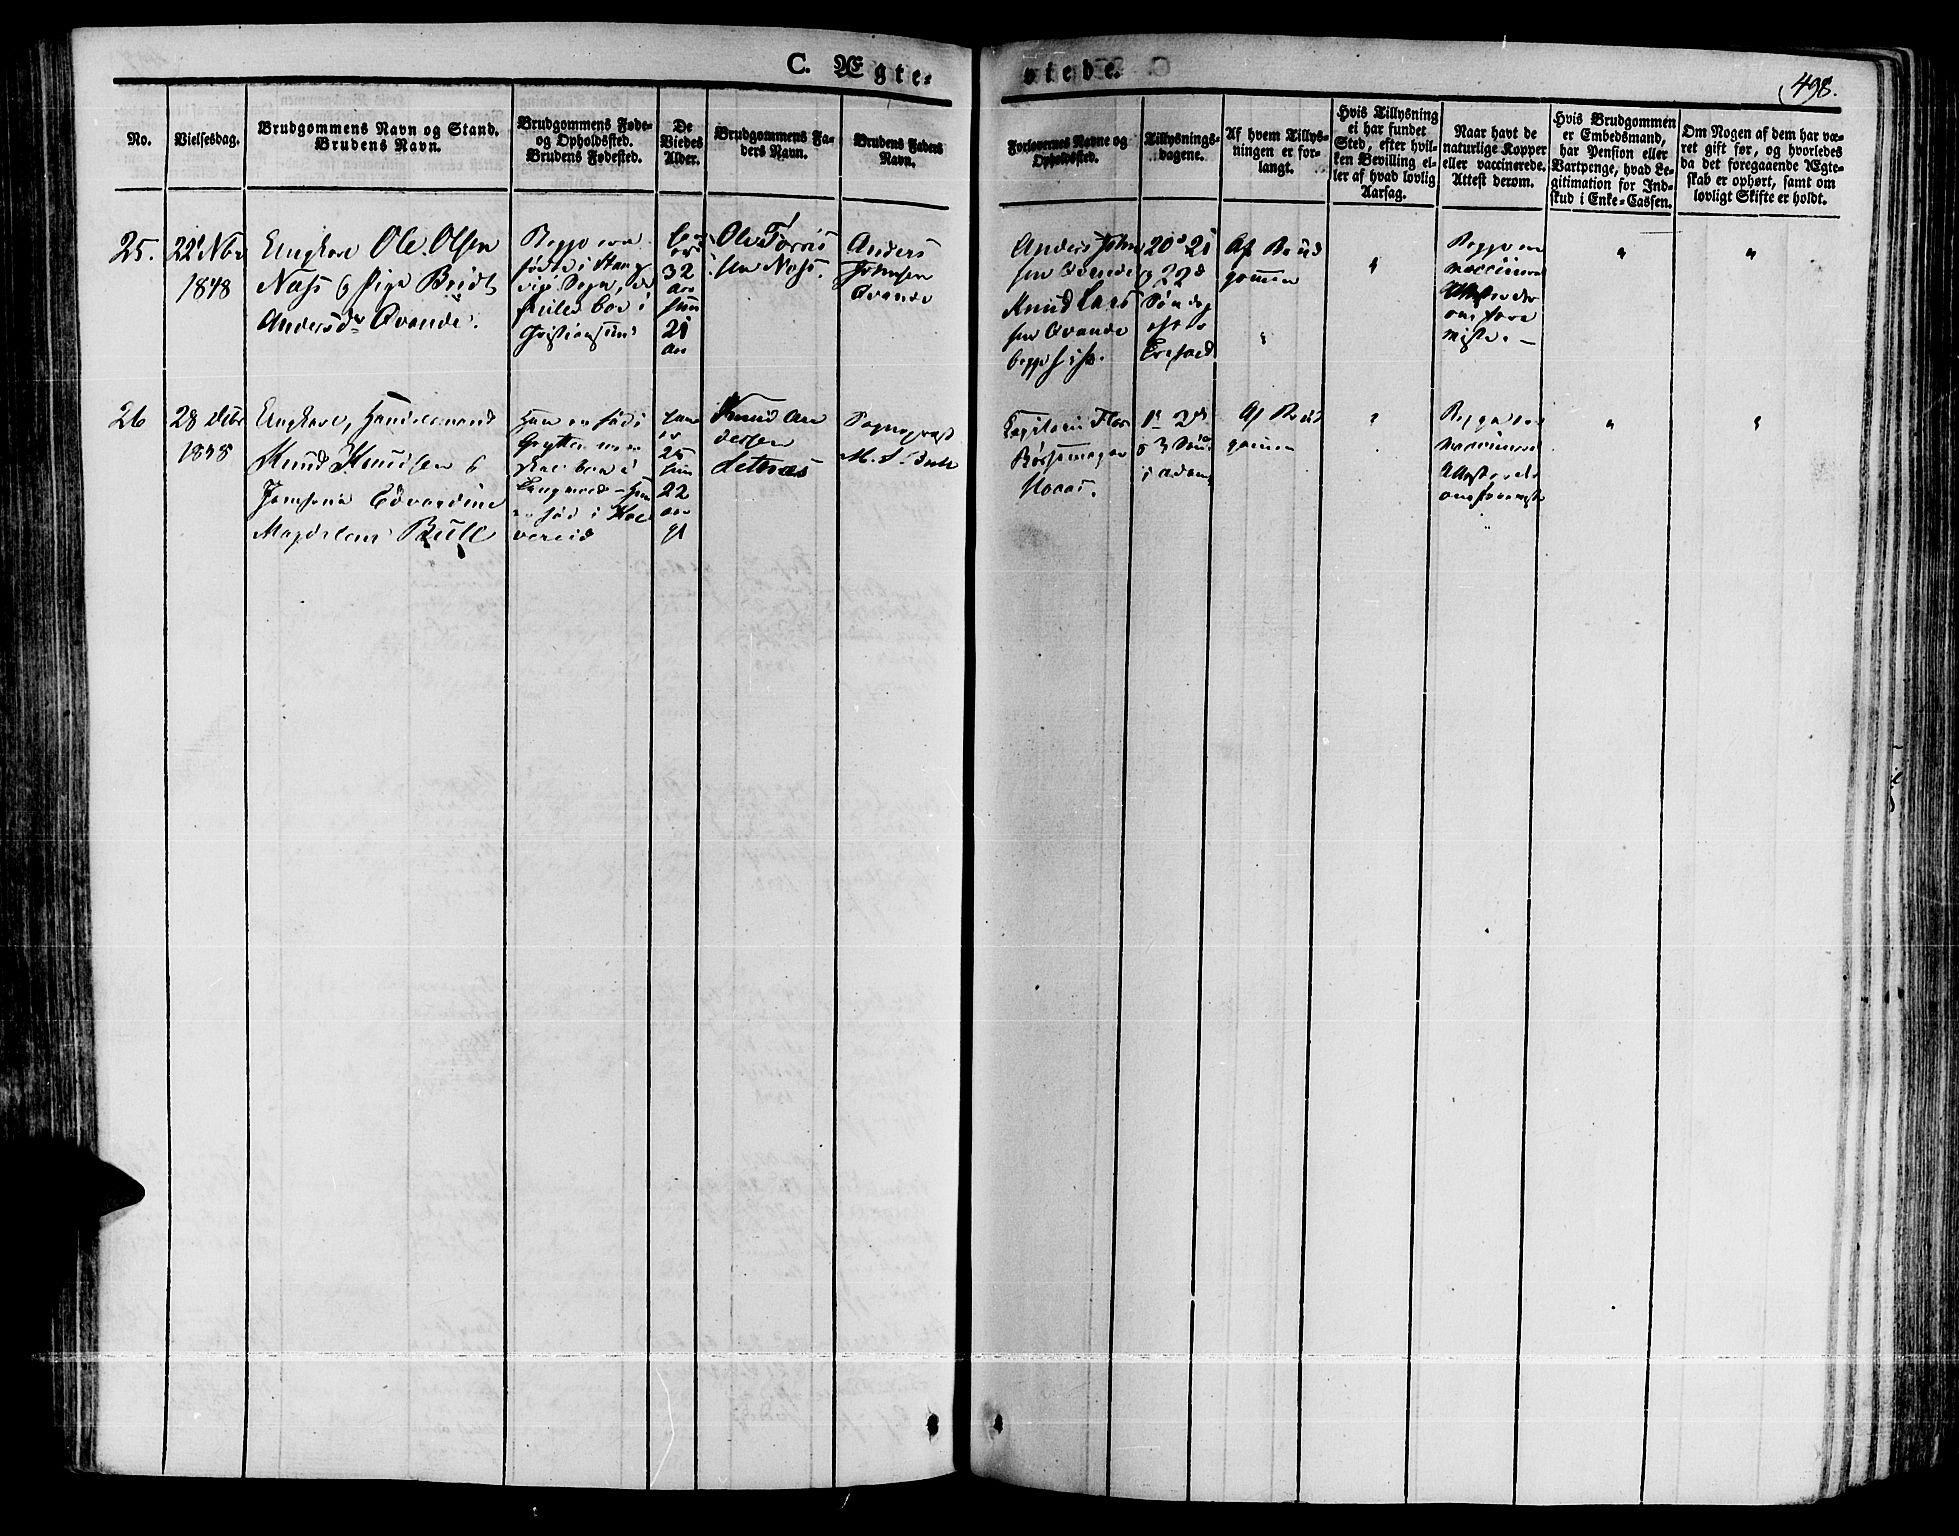 C. Ægte-
viede.
498.
No.
Vielsesdag.
Brudgommens Navn og Stand.
Brudens Navn.
Brudgommens Føde-
og Opholdssted.
Brudens Fødested.
De
Viedes
Alder.
Brudgommens Fa-
ders Navn.
Brudens Faders
Navn.
Forlovernes Navne og
Opholdssted.
Tillysnings-
dagene.
Af hvem Tillys-
ningen er for-
langt.
Hvis Tillysning
ei har fundet
Sted, efter hvil-
ken Bevilling el-
ler af hvad lovlig
Aarsag.
Naar havt de
naturlige Kopper
eller vaccinerede.
Attest derom.
Hvis Brudgommen
er Embedsmand,
har Pension eller
Vartpenge, hvad Le-
gitimation for Ind-
skud i Enke-Cassen.
Om Nogen af dem har væ-
ret gift før, og hvorledes
da det foregaaende Ægte-
skab er ophørt, samt om
lovligt Skifte er holdt.
25.
22 Nbr
1848
Ungkarl Ole Olsen
Næss & Pige Bridt
Andersdr Qvande.
Begge ere
fødte i Stang
vig Sogn,
boe i
Christiansund
32
aar
hun
21
aar
Ole Torris
sen Næss.
Anders
Johnsen
Qvande
Anders John
sen Qvande
Knud Lars
sen Qvande
begge
20de 21
& 22de
Søndag
efter
Trefold
Af Brud
gommen
"
"
Begge ere
vaccinerede
"
"
26
28 Decbr
1848
Ungkarl, Handelsmand
Knud Knudsen &
Edvardine
Magdalene Bull
Han er fød i
Grytten
boer i
er fød i
han
er
25
hun
22
aar
gl
Knud An
dersen
Sogneprest
Bull
1te 2de
& 3 Sønd
i Advent
Af Brud
gommen
"
Begge ere
vaccinerede
"
"